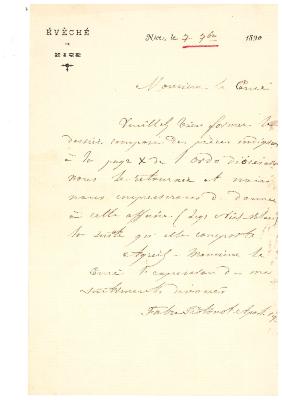 ÉVÊCHÉ
DE
NICE
Nice, le 7 7bre 1890
Monsieur le Curé
Veuillez bien former le
dossier composé des pièces indiquées
à la page X de l'Ordo diocésain
nous le retourner et nous
nous empresserons de donner
à cette affaire
la suite qu'elle comporte
Agréez Monsieur le
Curé l'expression de mes
sentiments dévoués